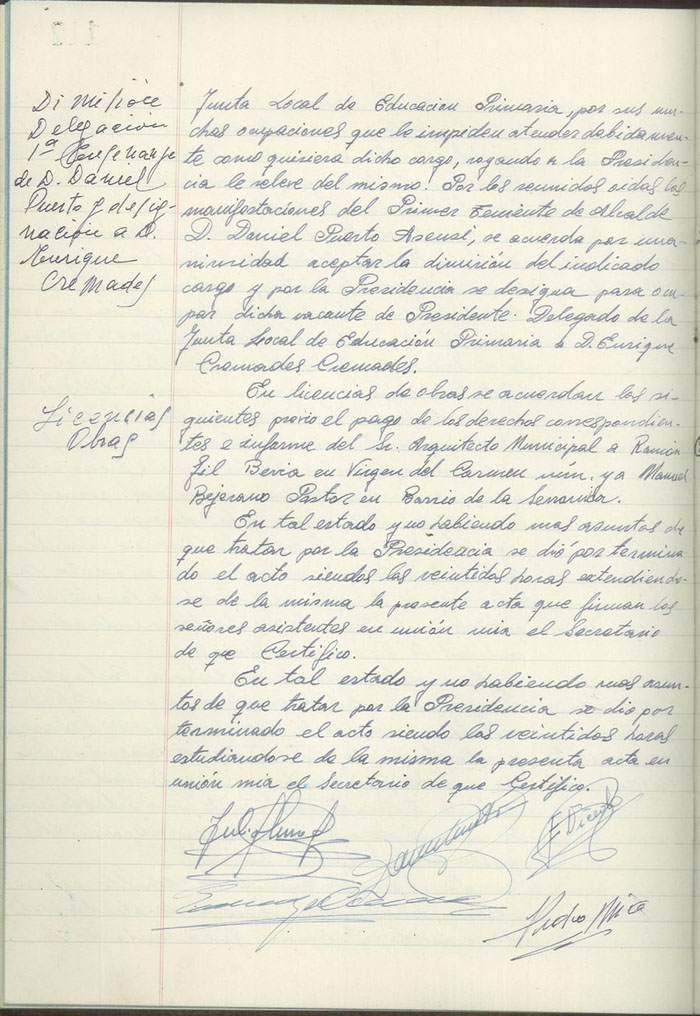 Dimisión
Delegación
1ª Enseñanza
de D. Daniel
Puerto y desig-
nación a D.
Enrique
Cremades
Junta Local de Educacion Primaria, por sus mu-
chas ocupaciones que le impiden atender debidamen-
te como quisiera dicho cargo, rogando a la Presiden-
cia le releve del mismo. Por los reunidos oidas las
manifestaciones del Primer Teniente de Alcalde
D. Daniel Puerto Asensi, se acuerda por una-
nimidad aceptar la dimisión del indicado
cargo y por la Presidencia se designa para ocu-
par dicha vacante de Presidente. Delegado de la
Junta Local de Educación Primaria a D. Enrique
Cremades Cremades.
Licencias
Obras
En licencias de obras se acuerdan las si-
guientes previo el pago de los derechos correspondien-
tes e informe del Sr. Arquitecto Municipal a Ramón
Gil Bevia en Virgen del Carmen núm. y a Manuel
Bejerano Pastor en Barrio de la
En tal estado y no habiendo mas asuntos de
que tratar por la Presidencia se dió por termina
do el acto siendos las veintidos horas extendiendo-
se de la misma la presente acta que firman los
señores asistentes en unión mia el Secretario
de que Certifico.
En tal estado y no habiendo mas asun-
tos de que tratar por la Presidencia se dio por
terminado el acto siendo las veintidos horas
estudiandose de la misma la presenta acta en
unión mia el Secretario de que Certifico.
Pedro Mira